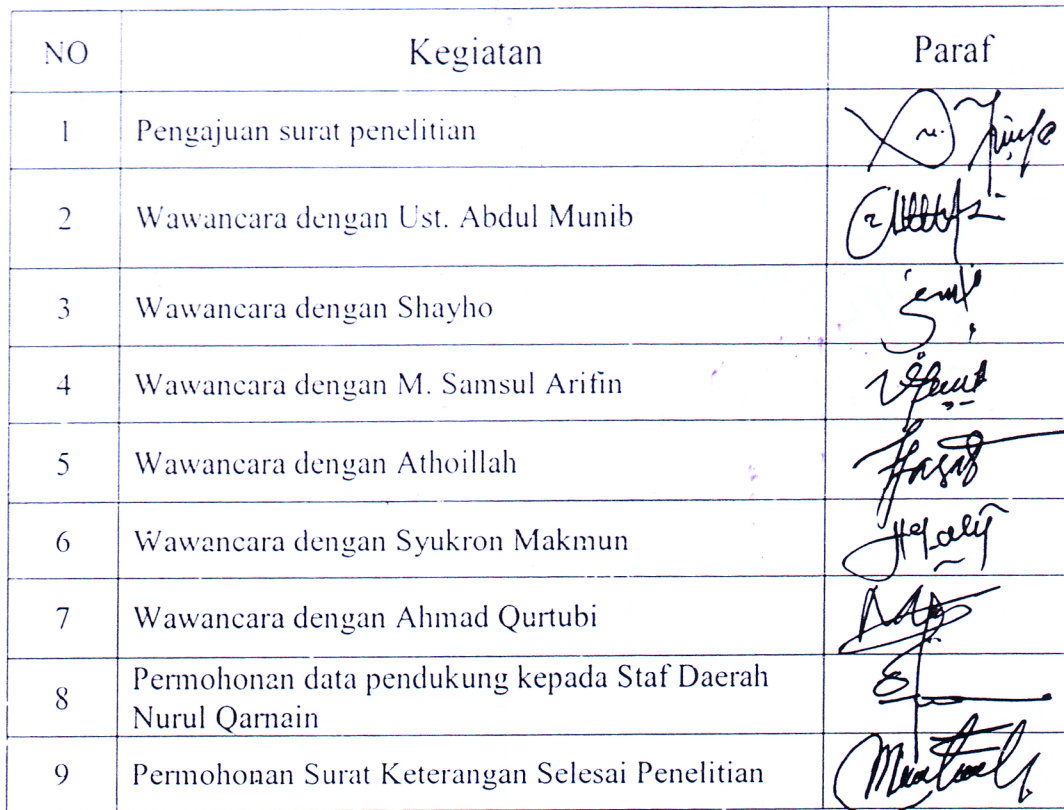 NO Kegiatan Paraf
1 Pengajuan surat penelitian
2 Wawancara dengan Ust. Abdul Munib
3 Wawancara dengan Shayho
4 Wawancara dengan M. Samsul Arifin
5 Wawancara dengan Athoillah
6 Wawancara dengan Syukron Makmun
7 Wawancara dengan Ahmad Qurtubi
8 Permohonan data pendukung kepada Staf Daerah
Nurul Qarnain
9 Permohonan Surat Keterangan Selesai Penelitian